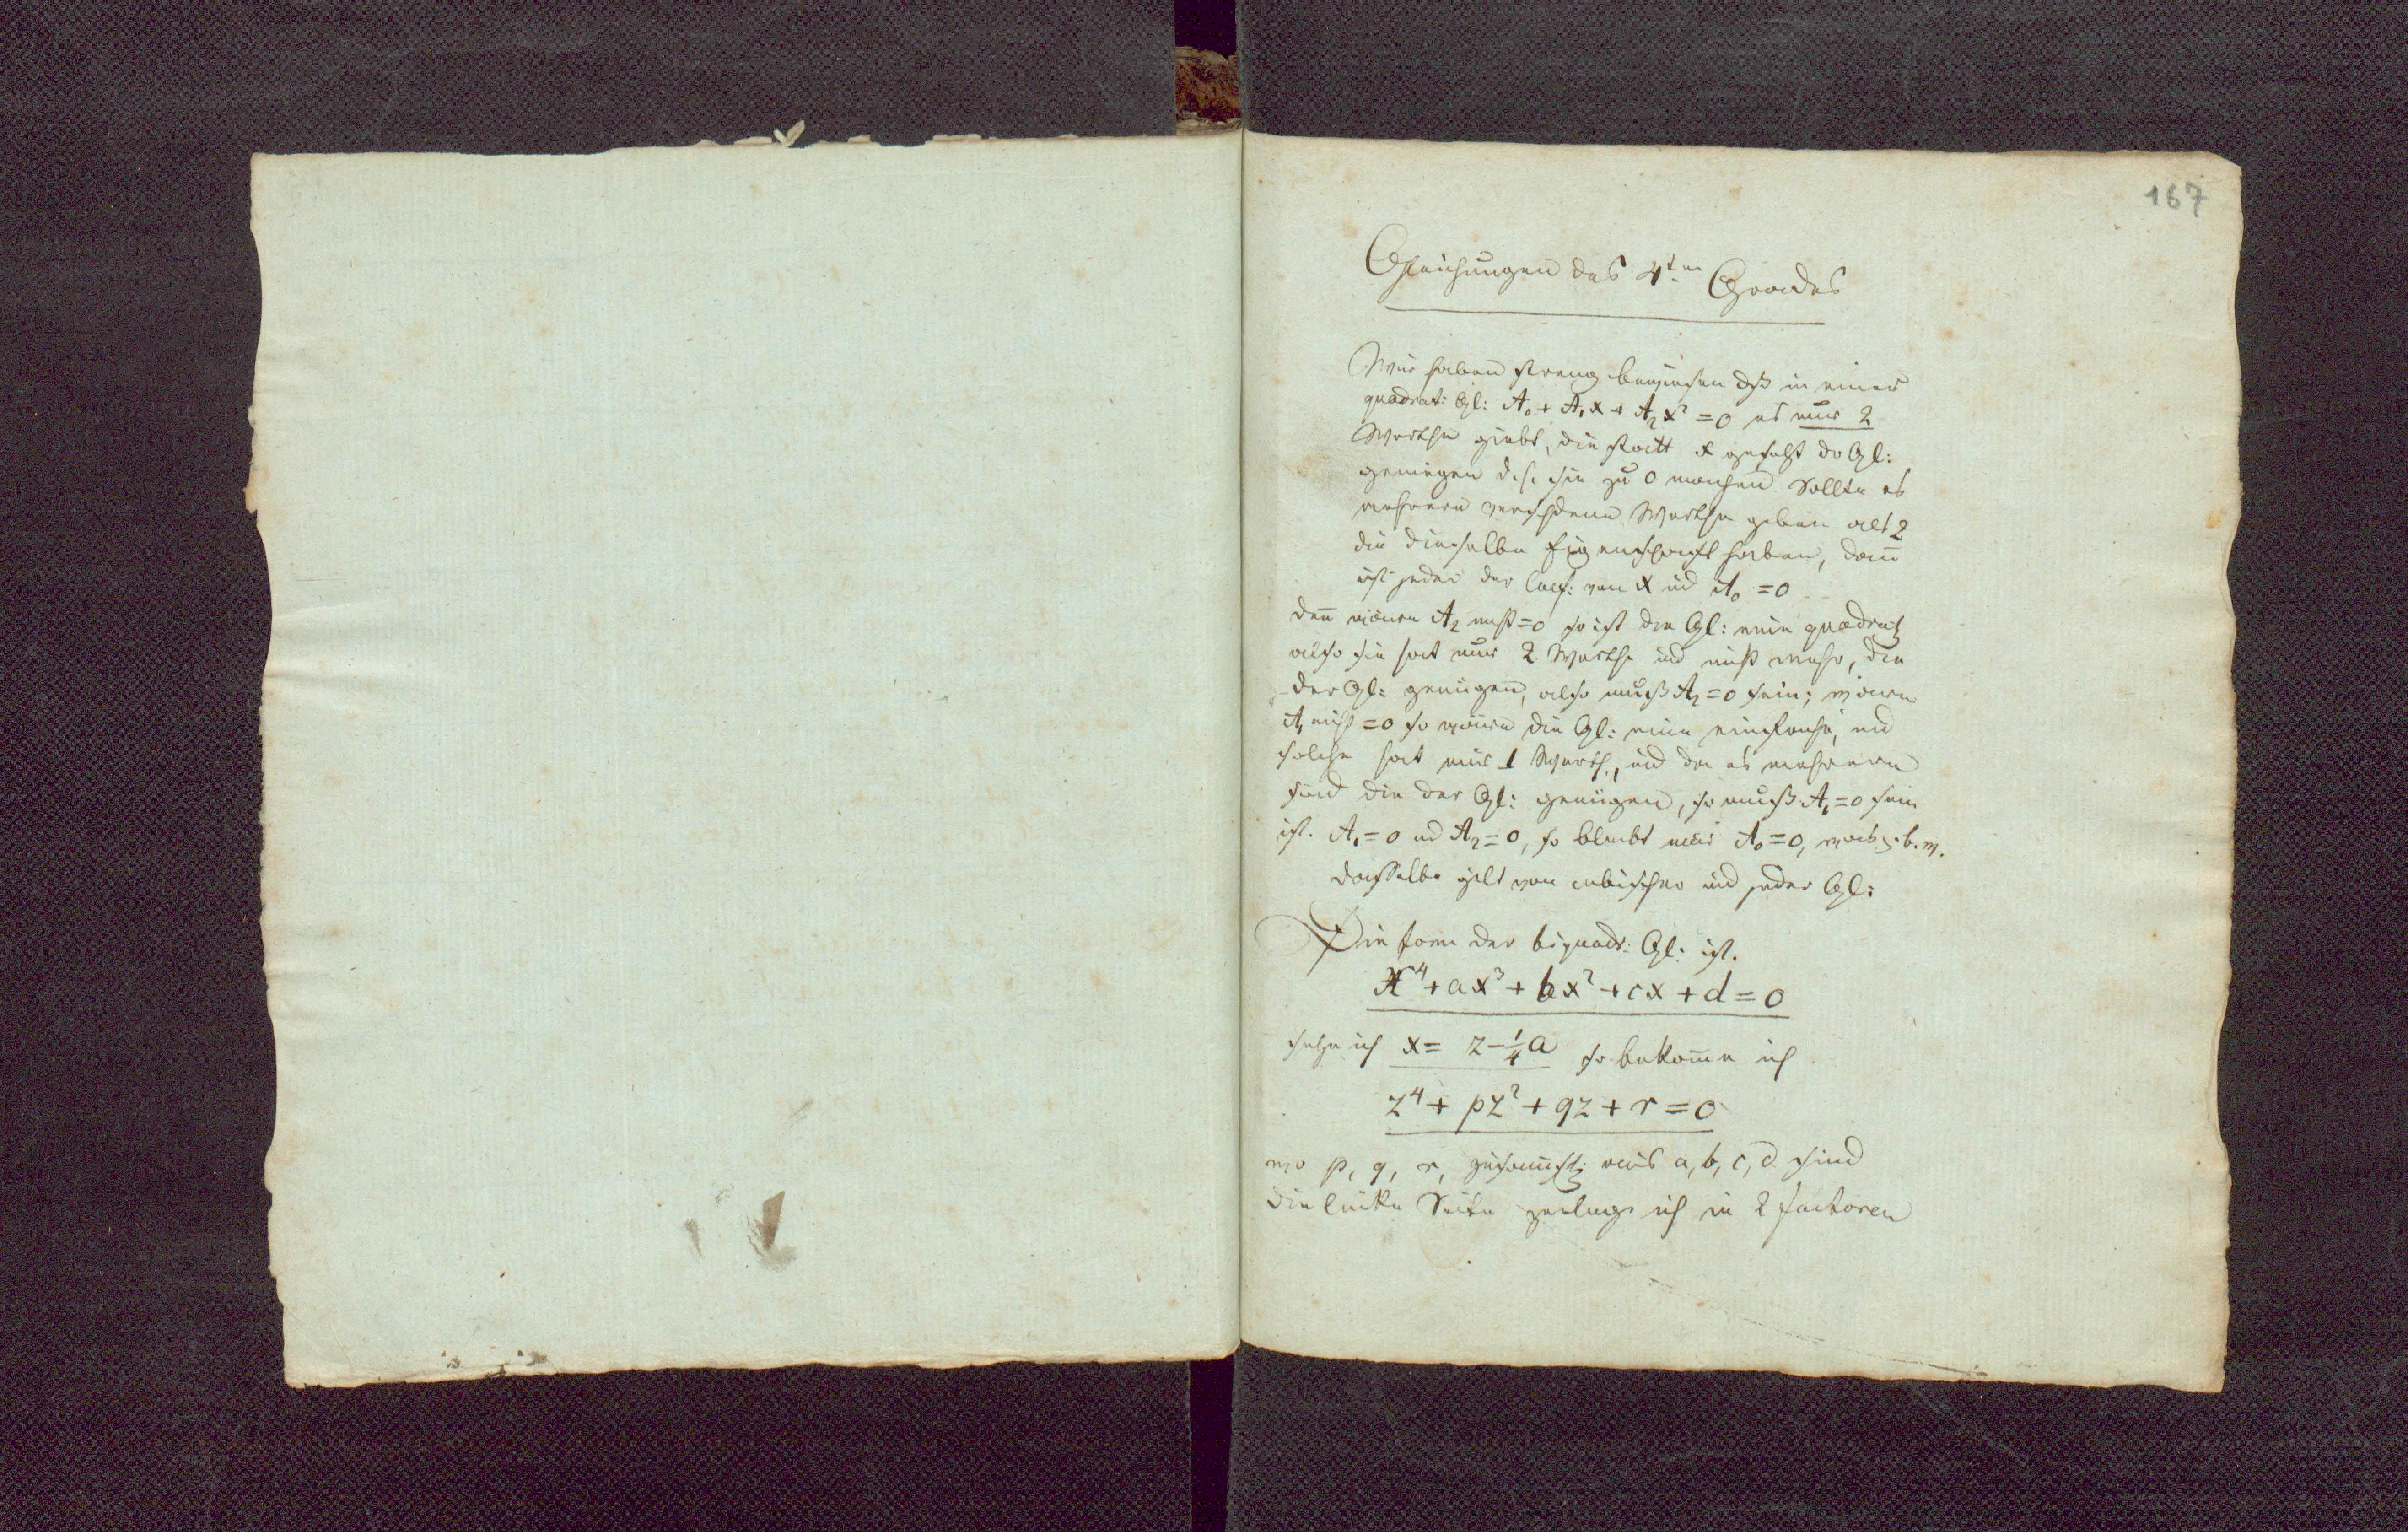 167
Gleichungen des 4ten Grades
Wir haben streng bewiesen dß in einer
quadrat: Gl: A₀ + A₁x + A₂x² = 0 es nur 2
Werthe giebt, die statt x gesetzt der Gl:
genügen d. h. sie zu 0 machen Sollte es
mehrere verschdene Werthe geben als 2
die dieselbe Eigenschaft haben, dann
ist jeder der Coef: von x und A₀ = 0
denn wäre A₂ nicht = 0 so ist die Gl: eine quadrat
also sie hat nur 2 Werthe und nicht mehr, die
der Gl: genügen, also muß A₂ = 0 sein; wäre
A₁ nicht = 0 so wäre die Gl: eine einfache, und
solche hat nur 1 Werth, und da es mehrere
sind die der Gl: genügen, so muß A₁ = 0 sein
ist. A₁ = 0 und A₂ = 0, so bleibt nur A₀ = 0, was z. b. w.
dasselbe gilt von cubischer und jeder Gl:
Die Form der biquadr: Gl: ist.
x⁴ + ax³ + bx² + cx + d = 0
setze ich x = z - ¼a so bekomme ich
z⁴ + pz² + qz + r = 0
wo p, q, r, aus a, b, c, d sind
die linke Seite zerlege ich in 2 factoren